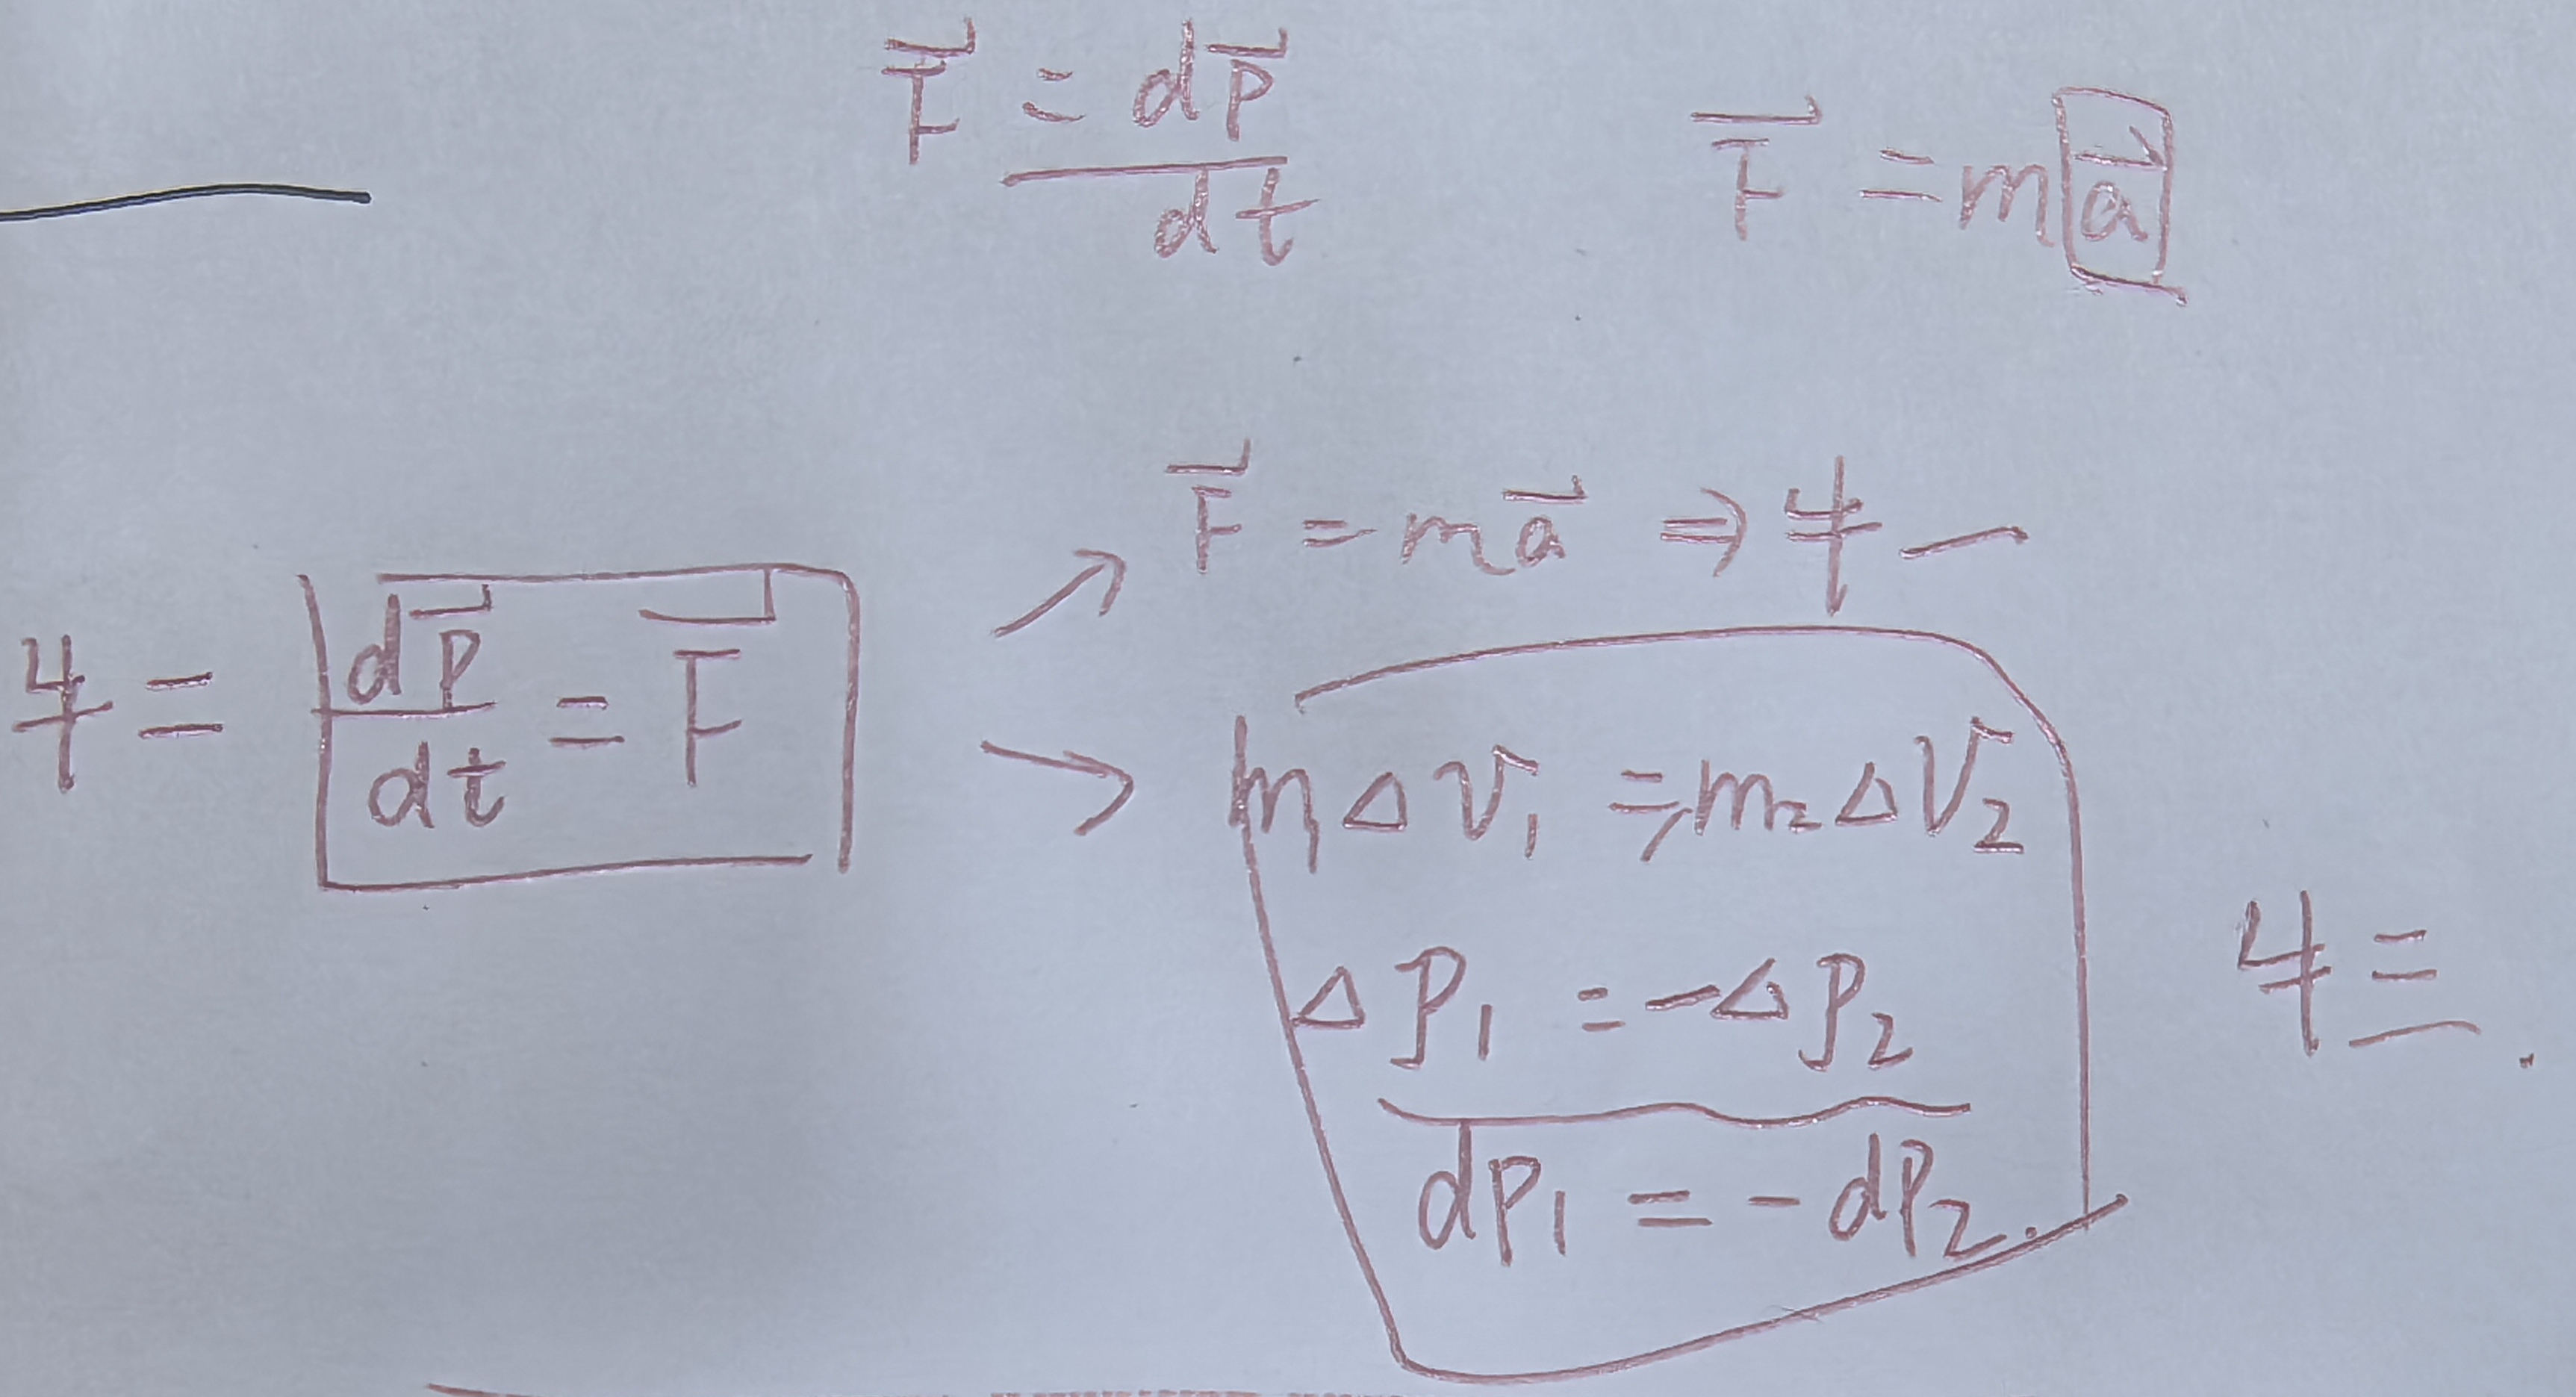 F⃗ = dp⃗/dt
F⃗ = ma⃗
F⃗ = ma⃗ ⇒ 牛一
牛二 dp⃗/dt = F⃗
m₁△v₁ = m₂△v₂
△p₁ = -△p₂
dp₁ = -dp₂.
牛三